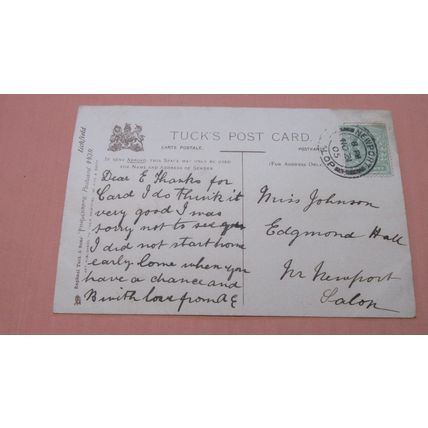 TUCK'S POST CARD.
CARTE POSTALE.
POSTKARTE
IF SENT ABROAD, THIS SPACE MAY ONLY BE USED
FOR NAME AND ADDRESS OF SENDER
(FOR ADDRESS ONLY)
NEWPORT
8 PM
05
SALOP
Lichfield
Raphael Tuck & Sons' Postcard
Dear E Thanks for
Card I do think it
very good I was
sorry not to see you
I did not start home
early Come when you
have a chance and
B with love from A E
Miss Johnson
Edgmond Hall
Nr Newport
Salop